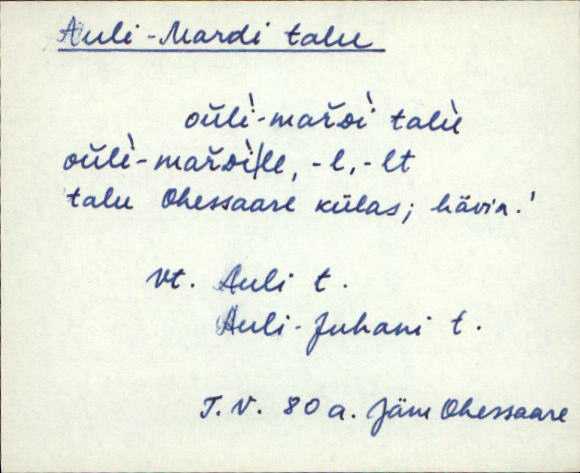 Auli-Mardi talu
oŭli̖-mar̆di̖ talu̖
oŭli̖-mar̆di̖/le, -l, -lt
talu Ohessaare külas; hävin.!
vt. Auli t.
Auli-Juhani t.
T. V. 80 a. Jäm Ohessaare